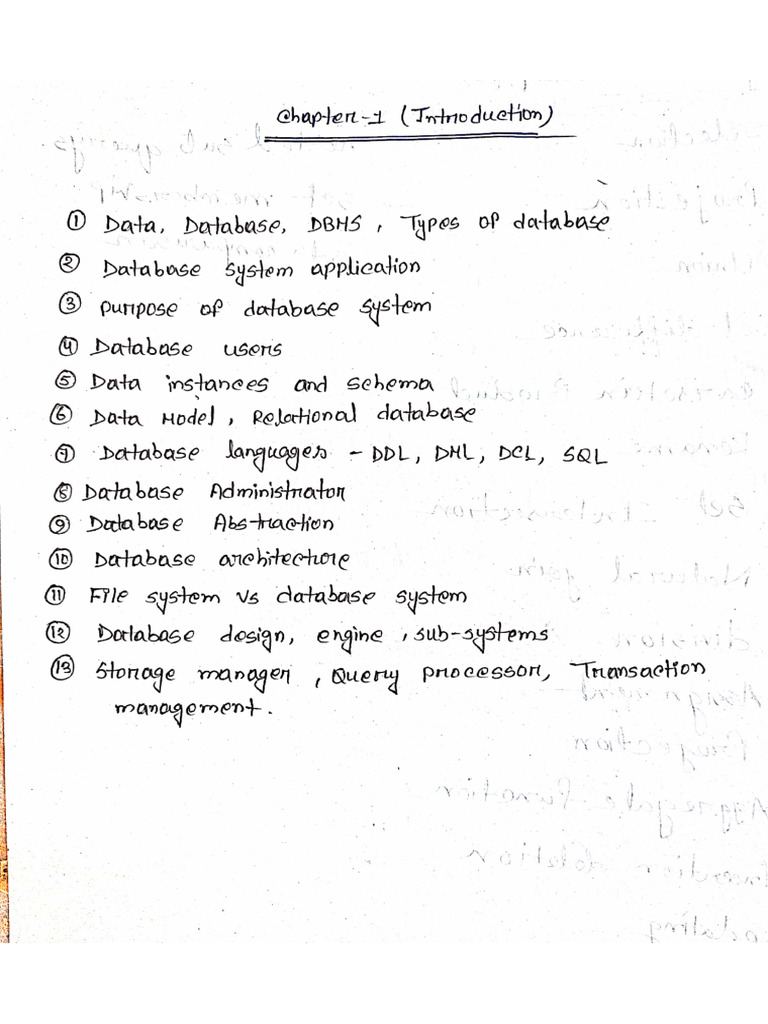 Chapter-1 (Introduction)
① Data, Database, DBMS, Types of database
② Database system application
③ Purpose of database system
④ Database users
⑤ Data instances and schema
⑥ Data Model, Relational database
⑦ Database languages - DDL, DML, DCL, SQL
⑧ Database Administrator
⑨ Database Abstraction
⑩ Database architecture
⑪ File system vs database system
⑫ Database design, engine, sub-systems
⑬ Storage manager, Query processor, Transaction
management.